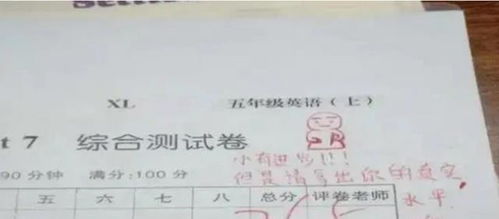 XL 五年级英语（上）
t 7 综合测试卷
小有进步!!!
但是请写出你的真实
水平.
90 分钟 满分：100 分
五 六 七 八 总分 评卷老师